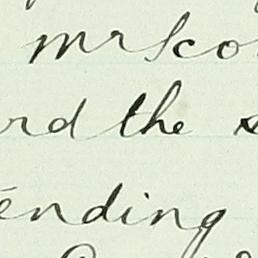 mr Sco
rd the s
ending